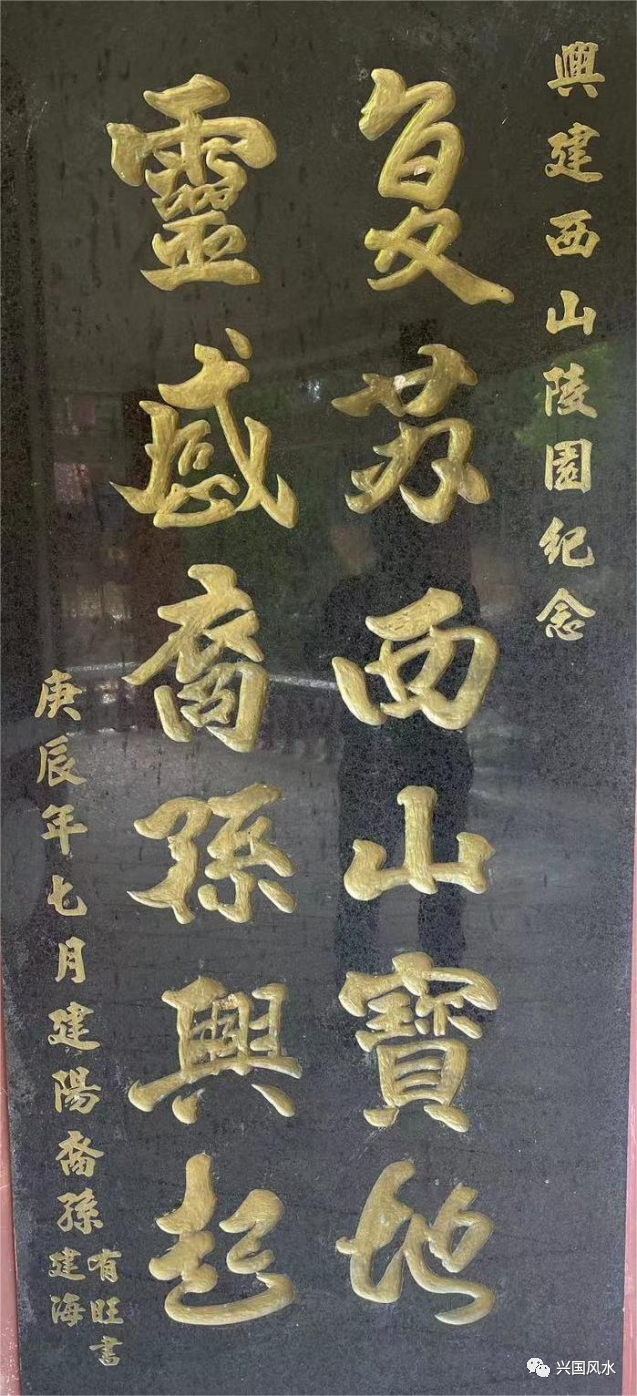 興建西山陵園纪念
复苏西山寳地
靈感裔孫興起
庚辰年七月建陽裔孫
有旺書
建海
兴国风水